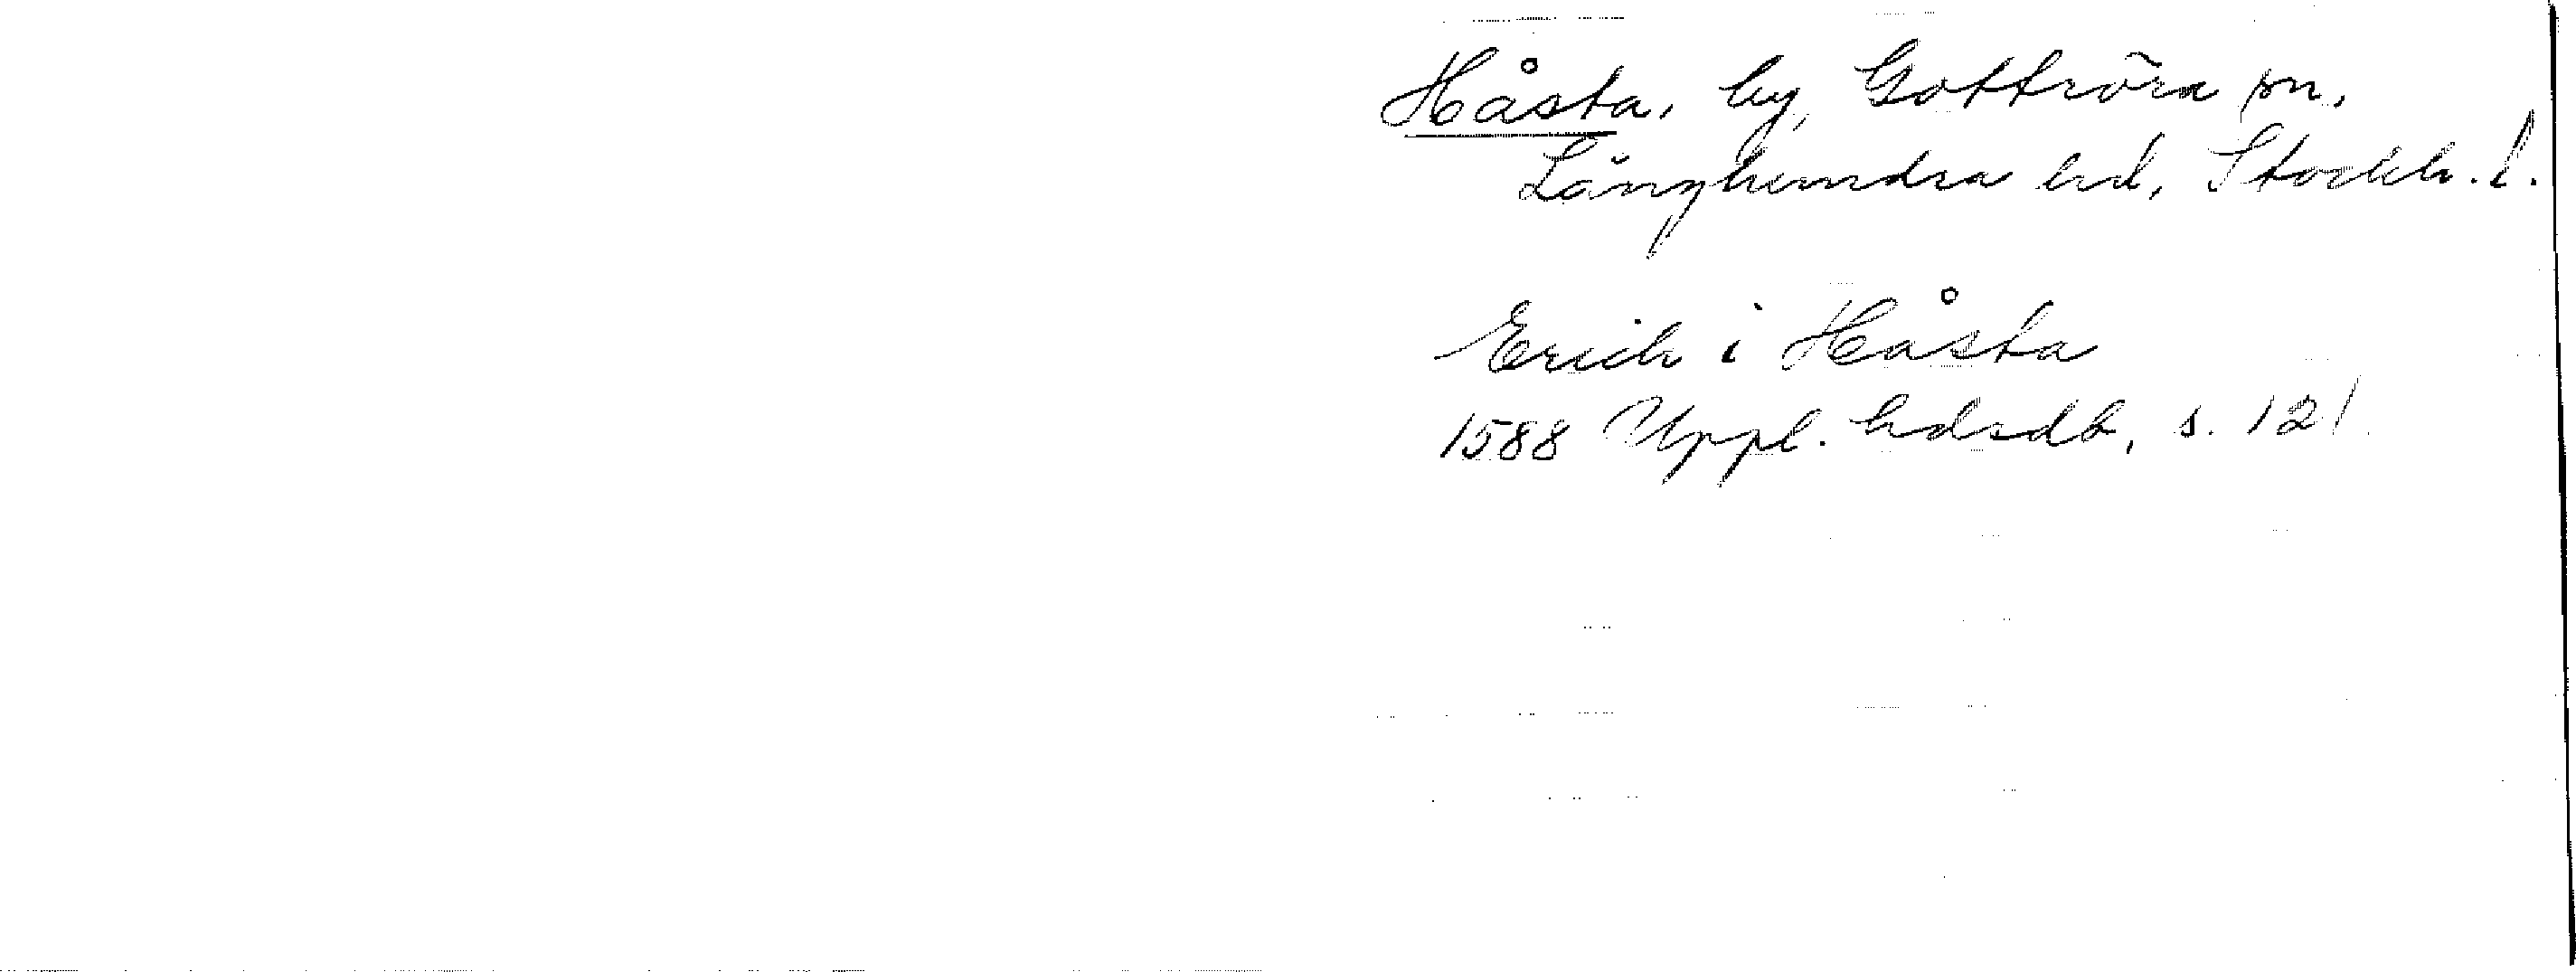 Håsta, by, Gottröra sn,
Långhundra hd, Stockh. l.
Erich i Håsta
1588 Uppl. hdsdb, s. 121.